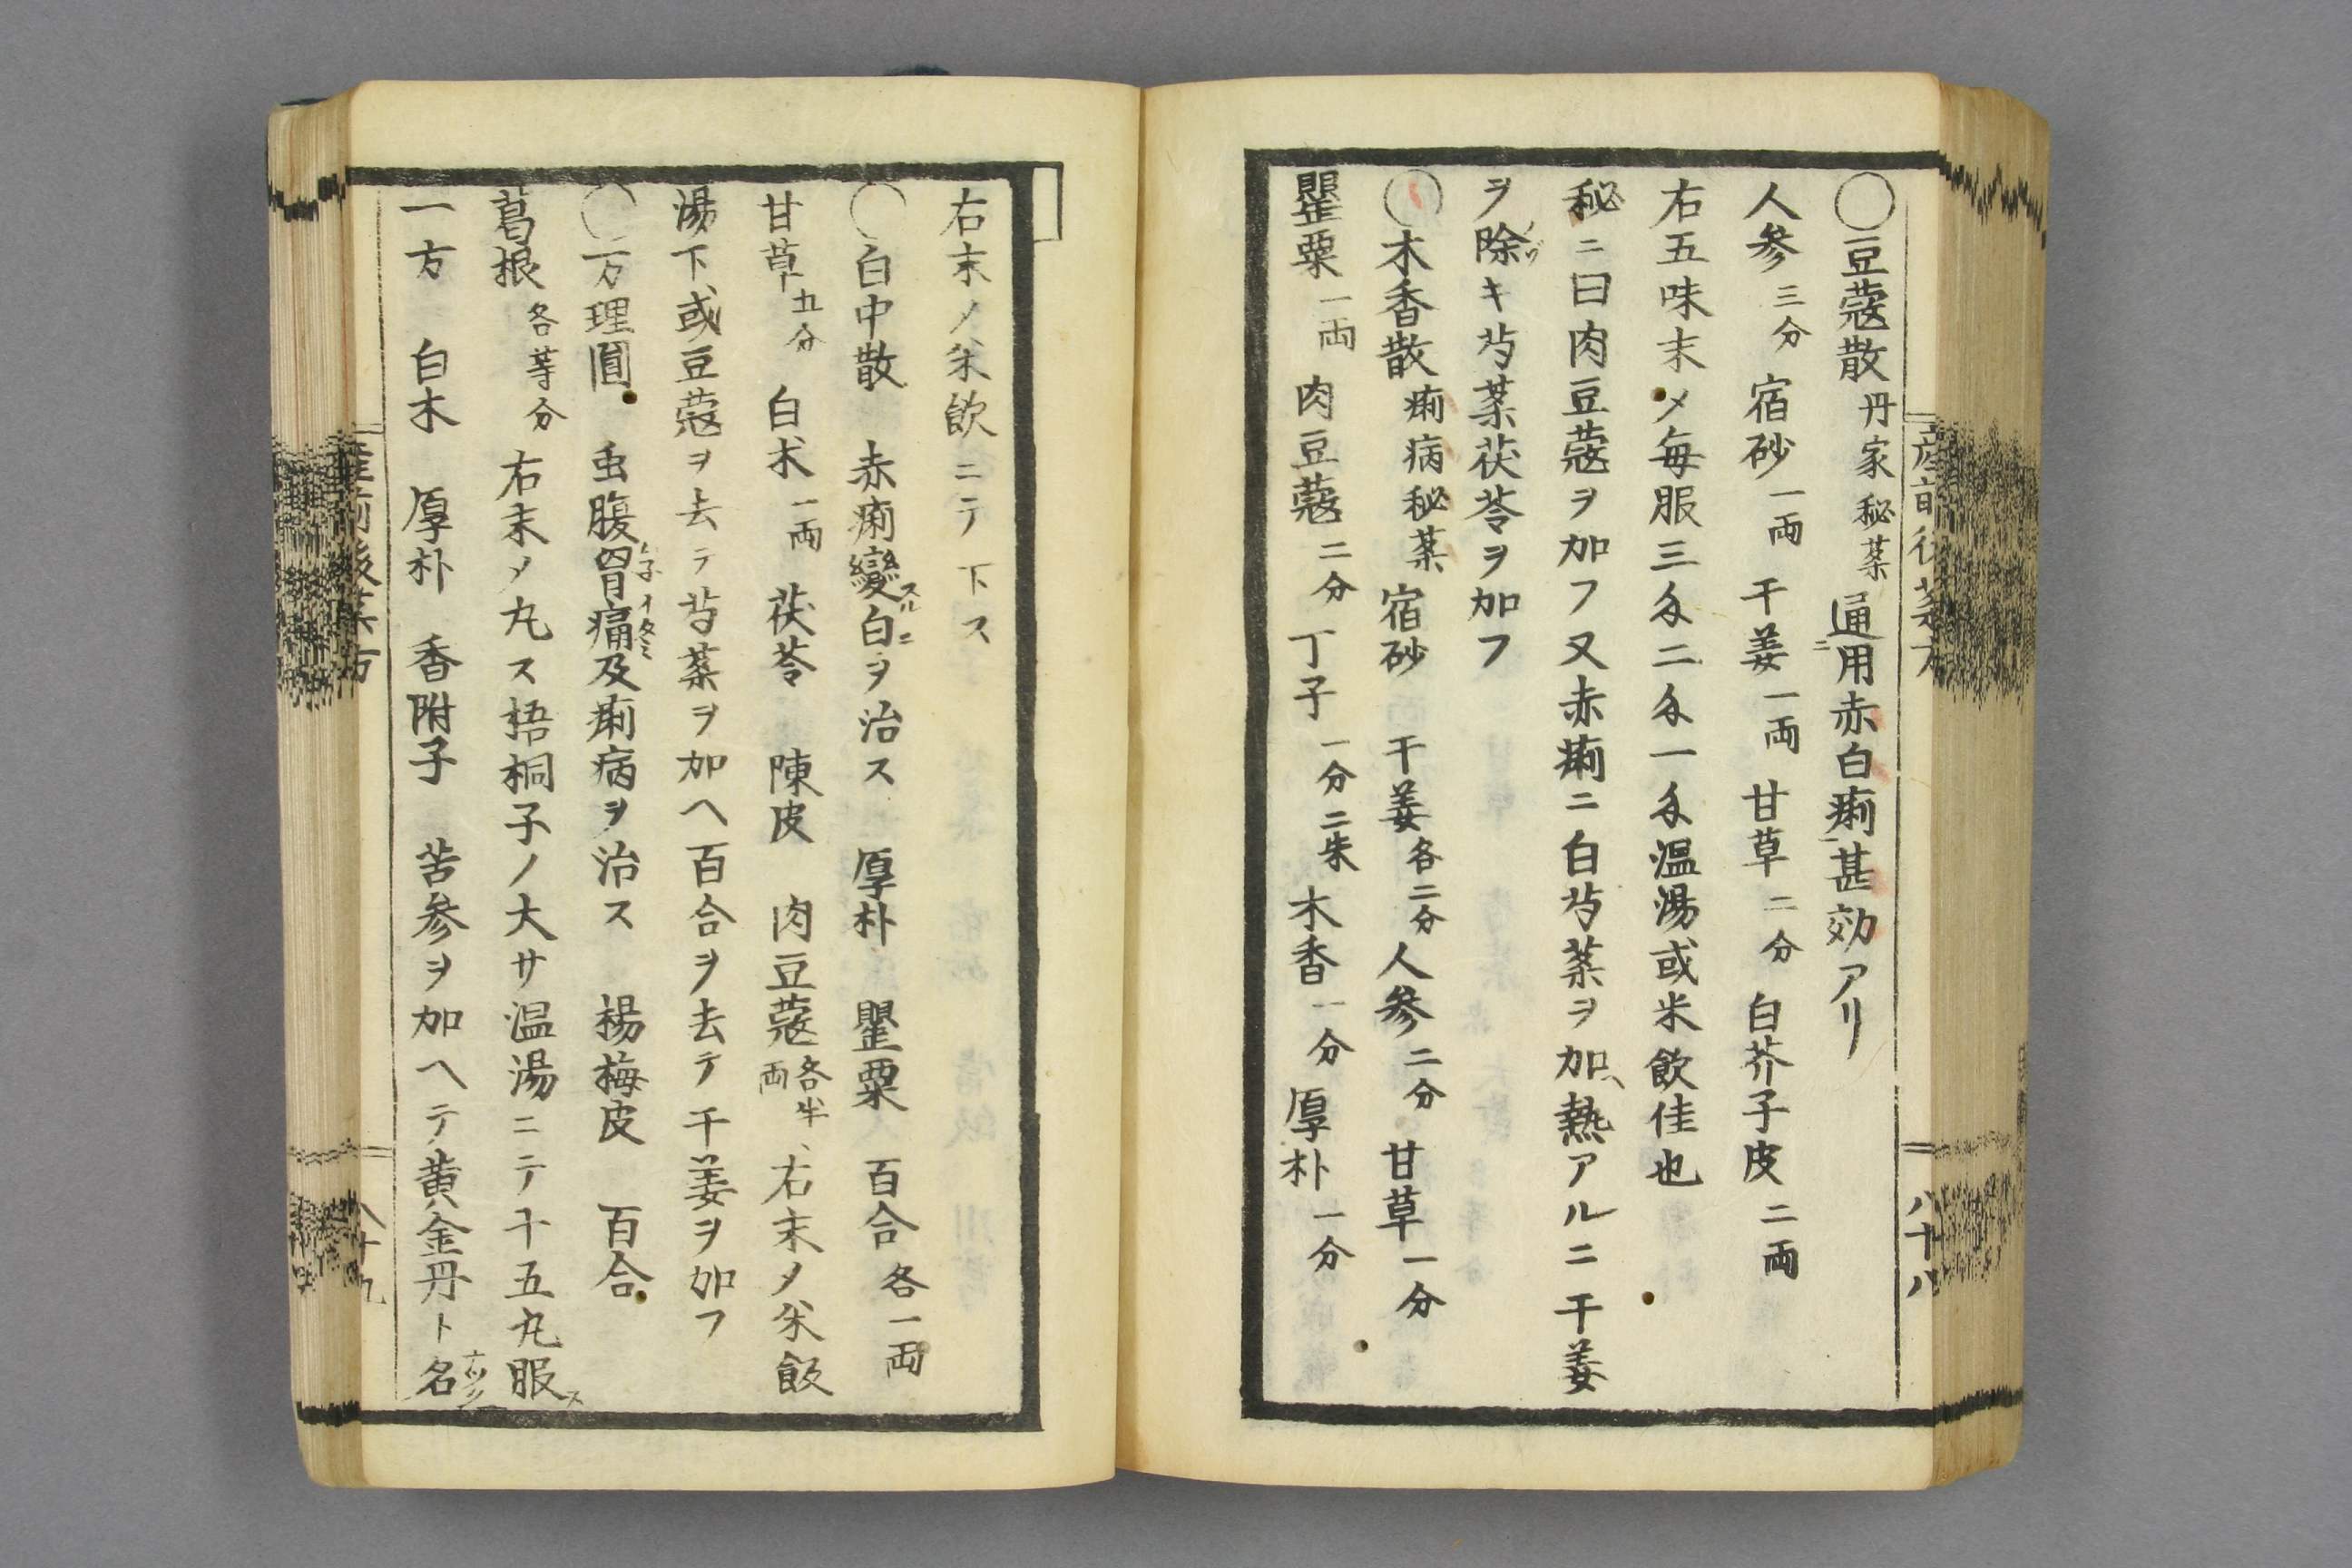 ○豆蔲散 丹家秘薬 通用ニ赤白痢甚効アリ
人参三分 宿砂一両 干姜一両 甘草二分 白芥子皮二両
右五味末メ毎服三匁二匁一匁温湯或米飲佳也
秘ニ曰肉豆蔲ヲ加フ又赤痢ニ白芍薬ヲ加ヘ熱アルニ干姜
ヲ除キ芍薬茯苓ヲ加フ
○木香散 痢病秘薬 宿砂 干姜各二分 人参二分 甘草一分
罌粟一両 肉豆蔲二分 丁子一分二朱 木香一分 厚朴一分
産前後薬方 八十八
右末ノ米飲ニテ下ス
○白中散 赤痢變スルニ白ヲ治ス 厚朴 罌粟 百合各一両
甘草五分 白朮一両 茯苓 陳皮 肉豆蔲各半両、右末メ米飯
湯下或豆蔲ヲ去テ芍薬ヲ加ヘ百合ヲ去テ干姜ヲ加フ
○万理圓 虫腹胷痛及痢病ヲ治ス 楊梅皮 百合
葛根各等分 右末メ丸ス梧桐子ノ大サ温湯ニテ十五丸服ス
一方 白木 厚朴 香附子 苦参ヲ加ヘテ黄金丹ト名
産前後薬方 八十九